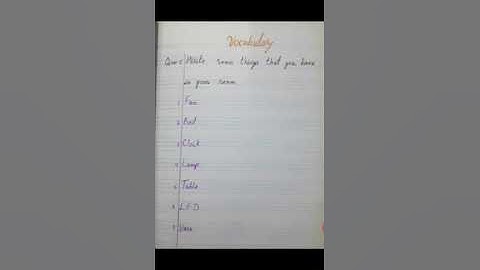 Vocabulary
Ques: Write some things that you have
in your room
1 Fan
2 Bed
3 Clock
4 Lamp
5 Table
6 L.E.D
7 Vase